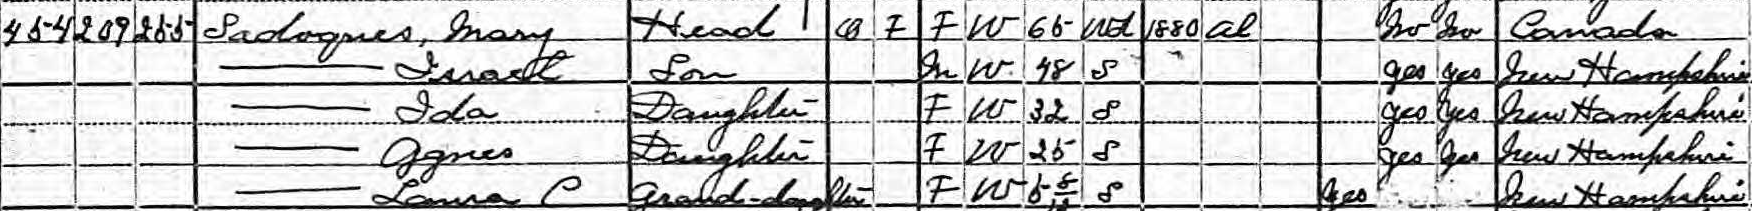 454 209 255 Sadoques, Mary Head 1 O F F W 65 Wd 1880 Al No No Canada
— Israel Son M W 48 S yes yes New Hampshire
— Ida Daughter F W 32 S yes yes New Hampshire
— Agnes Daughter F W 25 S yes yes New Hampshire
— Laura C Grand-daughter F W 5 S yes New Hampshire